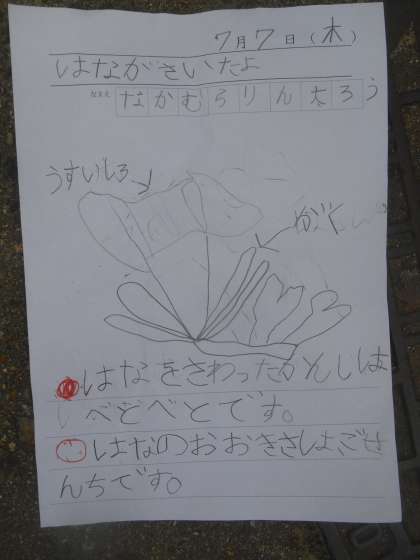 7月7日(木)
はながさいたよ
なまえ なかむらりん太ろう
うすいしろ
はなをさわったかんしは
べとべとです。
はなのおおきさは、ごせ
んちです。